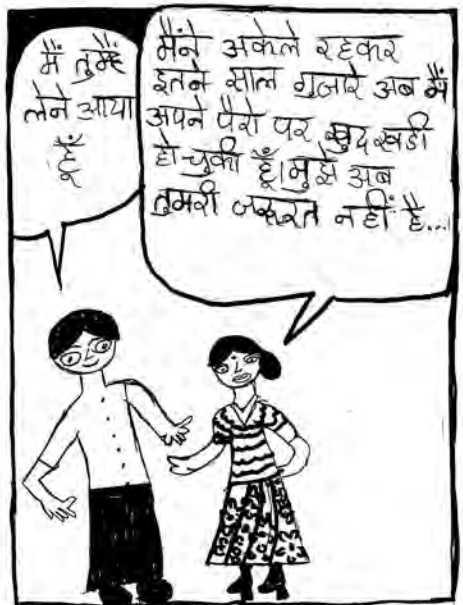 मैं तुम्हें
लेने आया
हूँ
मैंने अकेले रहकर
इतने साल गुजारे अब मैं
अपने पैरो पर खुद खडी
हो चुकी हूँ। मुझे अब
तुमरी जरूरत नहीं है...।